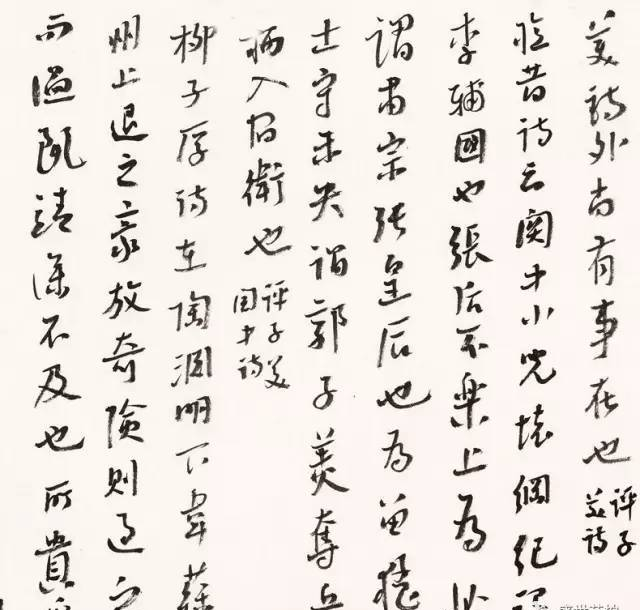 美詩外尚有事在也 評子美詩
憶昔詩云關中小兒壞綱紀謂
李輔國也張后不樂上為忙
謂肅宗張皇后也為留猛
士守未央謂郭子儀奪兵
柄入宿衛也 評子美 中詩
柳子厚詩在陶淵明下韋蘇
州上退之豪放奇險則過之
而溫麗靖深不及也所貴